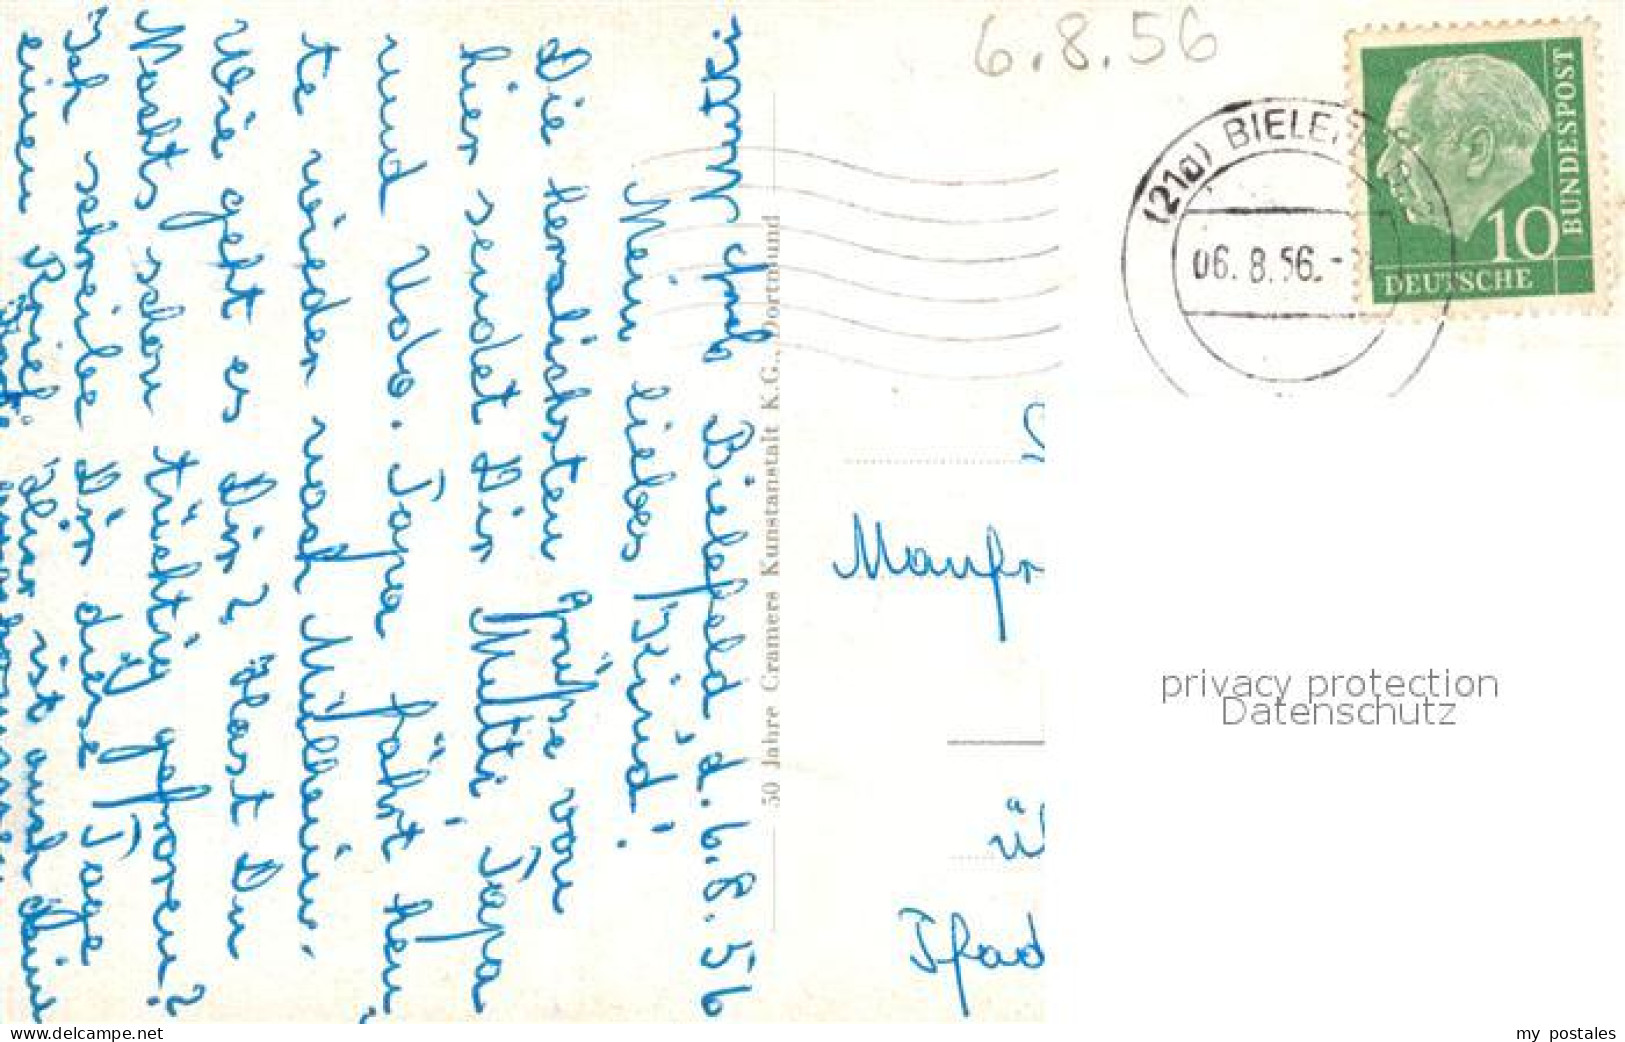 6.8.56
(21a) BIELEF
06.8.56.-
DEUTSCHE
BUNDESPOST
10
Bielefeld d. 6.8.56
Mein liebes Kind!
Die herzlichsten Grüße von
hier sendet Dir Mutti, Papa
und Udo. Papa fährt heu
te wieder nach Mülheim.
Wie geht es Dir? Hast Du
Nachts schon tüchtig gefroren?
Ich schreibe Dir diese Tage
einen Brief. Hier ist auch Dein
50 Jahre Cramers Kunstanstalt K.G., Dortmund
Manfr
Pfad
privacy protection
Datenschutz
www.delcampe.net
my postales